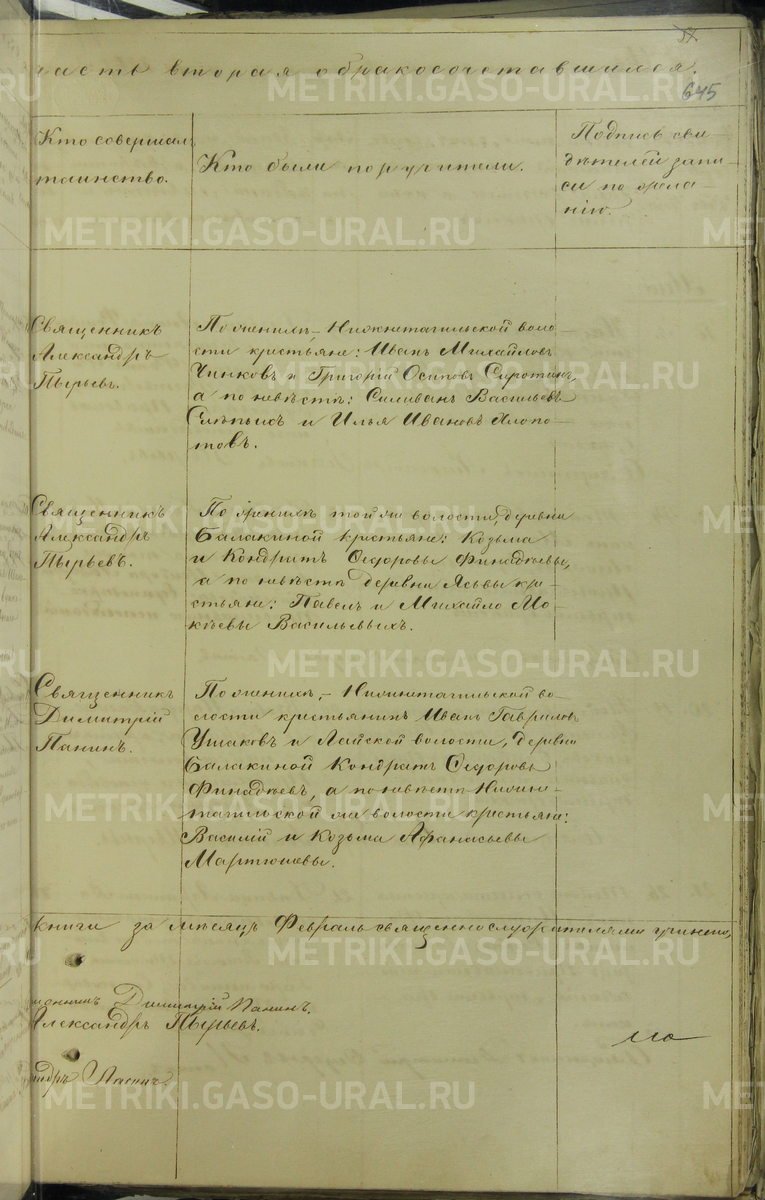 часть вторая о бракосочетавшихся.
645
Кто совершал
таинство.
Кто были поручители.
Подпись сви-
дѣтелей запи-
си по жела-
нію.
Священникъ
Александръ
Пырьевъ.
По женихѣ – Нижнетагильской воло-
сти крестьяне: Иванъ Михайловъ
Чинковъ и Григорій Осиповъ Сиротинъ,
а по невѣстѣ: Селиванъ Васильевъ
и Илья Ивановъ Хлопо-
товъ.
Священникъ
Александръ
Пырьевъ.
По женихѣ той же волости, деревни
Балакиной крестьяне: Козьма
и Кондратъ Ѳедоровы Финадѣевы,
а по невѣстѣ деревни кре-
стьяне: Павелъ и Михайло Мо-
кѣевы Васильевыхъ.
Священникъ
Димитрій
Панинъ.
По женихѣ, – Нижнетагильской во-
лости крестьянинъ Иванъ Гавриловъ
Ушаковъ и Лайской волости, деревни
Балакиной Кондратъ Ѳедоровъ
Финадѣевъ, а по невѣстѣ Нижне-
тагильской же волости крестьяне:
Василій и Козьма Афанасьевы
Мартюшевы.
книги за мѣсяцъ Февраль священнослужителями учинено,
Димитрій Панинъ.
Александръ Пырьевъ.
METRIKI.GASO-URAL.RU